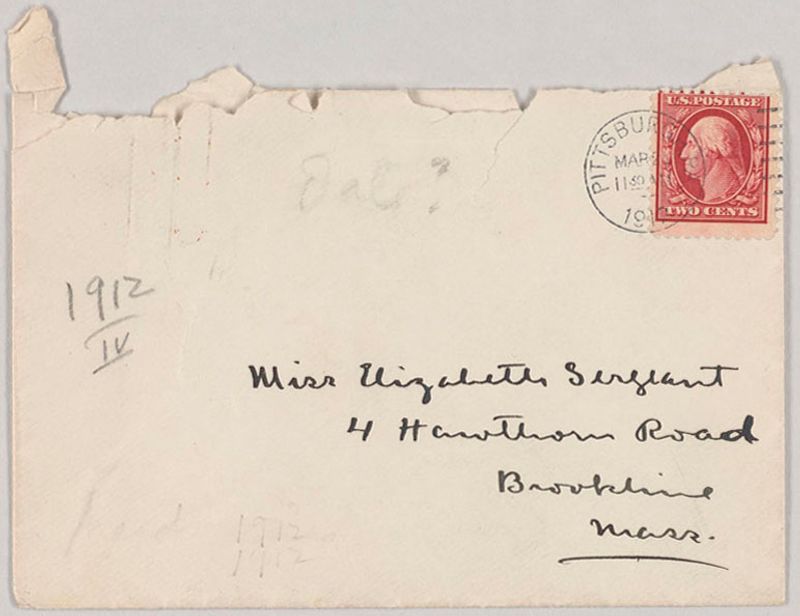 U.S. POSTAGE
PITTSBURG
MAR
11 30 A
19
TWO CENTS
Date?
1912
IV
Miss Elizabeth Sergeant
4 Hawthorn Road
Brookline
Mass.
1912
1912